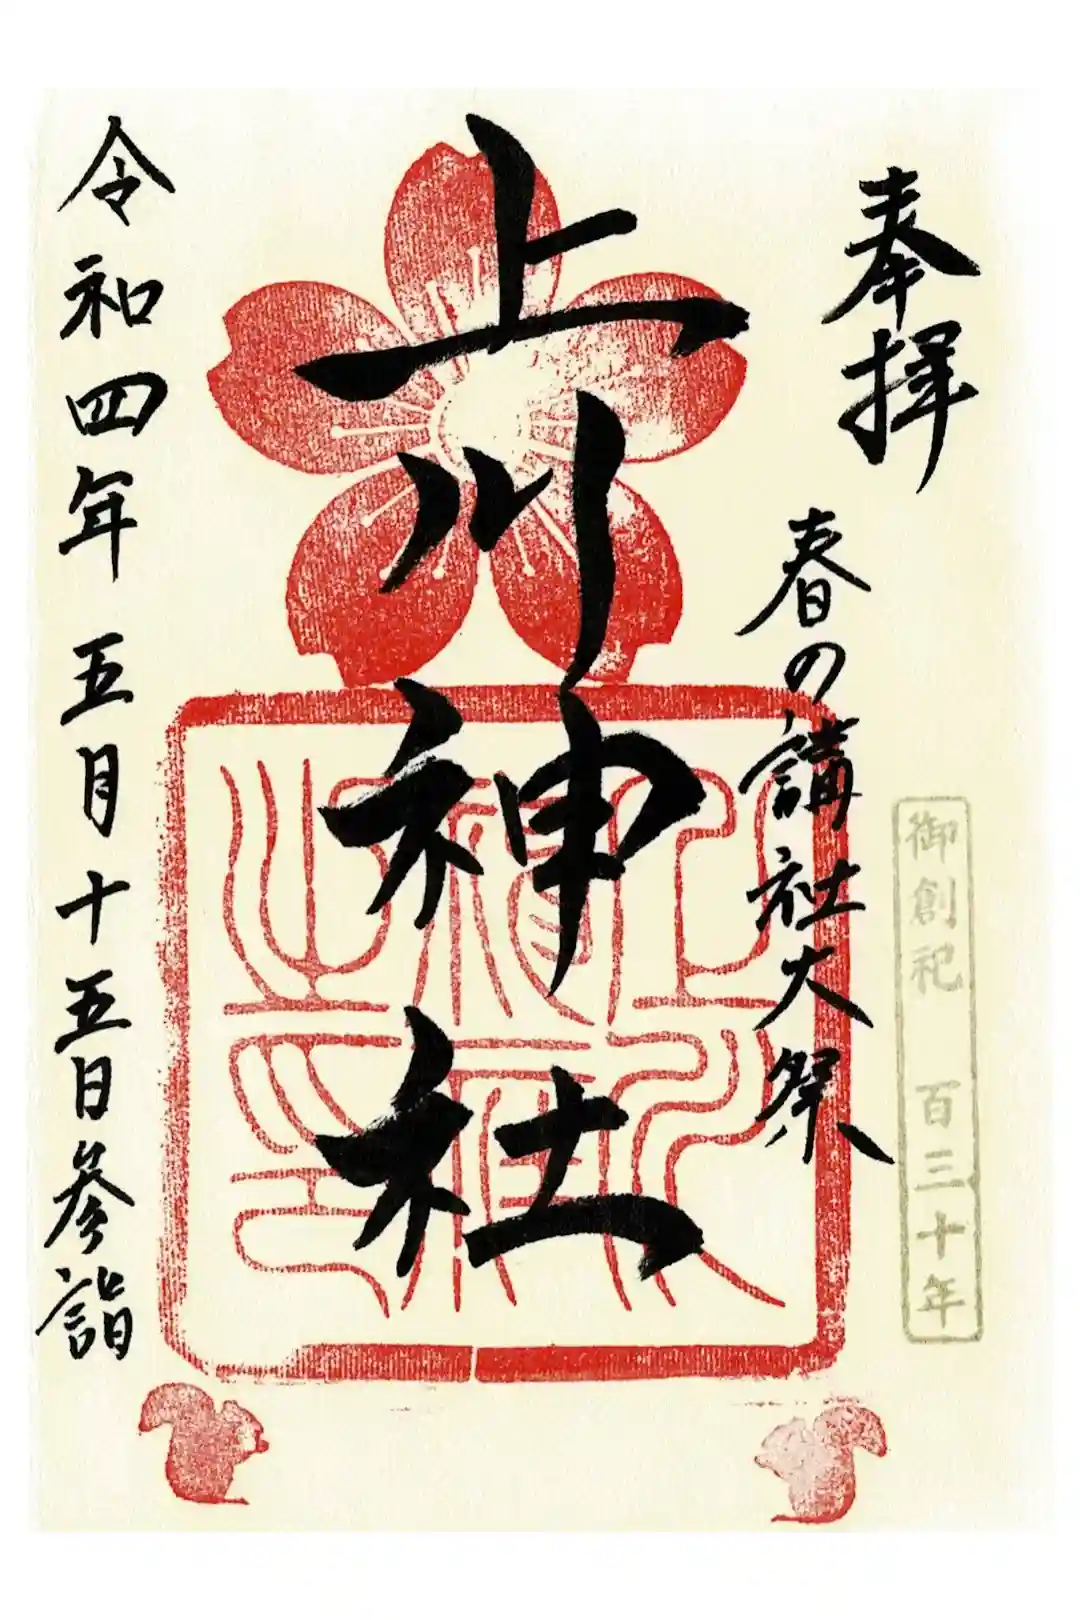 奉拝
春の講社大祭
御創祀 百三十年
上川神社
上川神社之印
令和四年五月十五日参詣